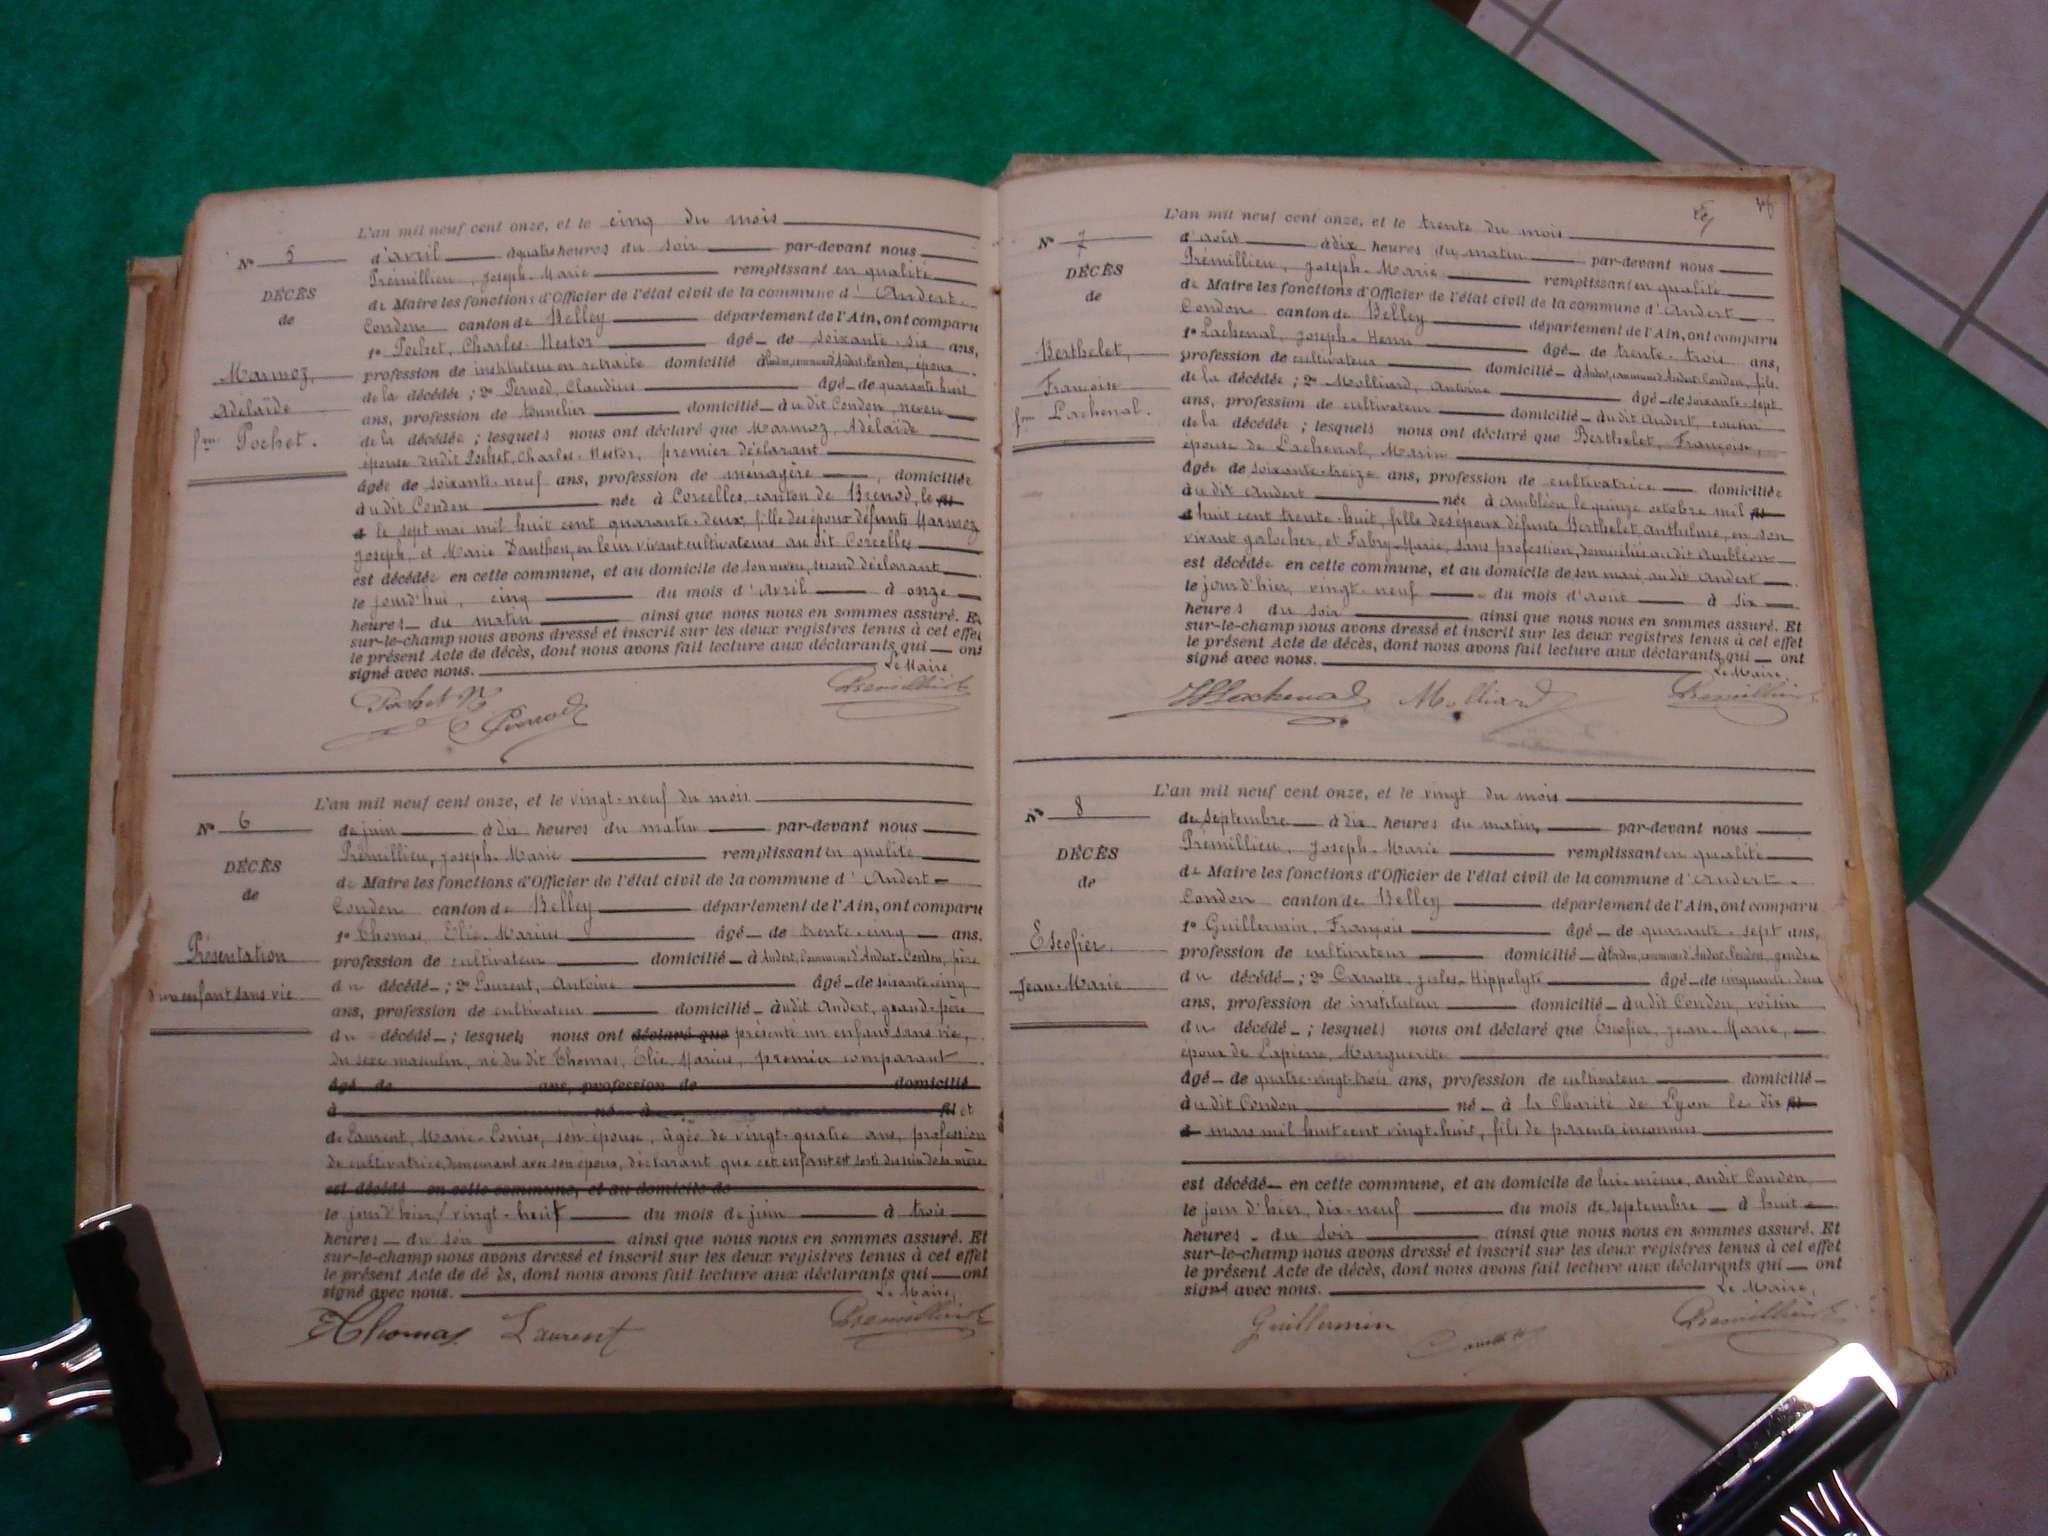 L'an mil neuf cent onze, et le cinq du mois
N° 5
d'avril à quatre heures du soir par-devant nous
DÉCÈS
Prémillieu, Joseph-Marie remplissant en qualité
de
de Maire les fonctions d'Officier de l'état civil de la commune d'Andert-
Condon canton de Belley département de l'Ain, ont comparu
1° Pochet, Charles-Nestor âgé de soixante-six ans,
Marmoz,
profession de instituteur en retraite domicilié à Condon, commune d'Andert-Condon, époux
Adélaïde
de la décédée ; 2° Pernod, Claudius âgé de quarante-huit
ans, profession de tonnelier domicilié à udit Condon, neveu
fme Pochet.
de la décédée ; lesquels nous ont déclaré que Marmoz, Adélaïde
épouse dudit Pochet, Charles-Nestor, premier déclarant
âgée de soixante-neuf ans, profession de ménagère, domiciliée
à udit Condon née à Corcelles, canton de Brénod, le fil
d le sept mai mil huit cent quarante-deux, fille des époux défunts Marmoz
Joseph, et Marie Danthon, en leur vivant cultivateurs au dit Corcelles
est décédée en cette commune, et au domicile de son neveu, second déclarant
le jourd'hui, cinq du mois d'Avril à onze
heures du matin ainsi que nous nous en sommes assuré. Et
sur-le-champ nous avons dressé et inscrit sur les deux registres tenus à cet effet
le présent Acte de décès, dont nous avons fait lecture aux déclarants qui ont
signé avec nous. Le Maire
Pochet N
C Pernod
Premillieu
L'an mil neuf cent onze, et le vingt-neuf du mois
N° 6
de juin à dix heures du matin par-devant nous
DÉCÈS
Prémillieu, Joseph-Marie remplissant en qualité
de
de Maire les fonctions d'Officier de l'état civil de la commune d'Andert-
Condon canton de Belley département de l'Ain, ont comparu
1° Thomas, Elie-Marius âgé de trente-cinq ans.
Présentation
profession de cultivateur domicilié à Andert, commune d'Andert-Condon, père
d'un enfant sans vie
du décédé ; 2° Laurent, Antoine âgé de soixante-cinq
ans, profession de cultivateur domicilié à udit Andert, grand-père
du décédé ; lesquels nous ont déclaré que présenté un enfant sans vie,
du sexe masculin, né du dit Thomas, Elie-Marius, premier comparant
âgé de ans, profession de domicilié
à né à fil et
de Laurent, Marie-Louise, son épouse, âgée de vingt-quatre ans, profession
de cultivatrice, demeurant avec son époux, déclarant que cet enfant est sorti du sein de sa mère
est décédé en cette commune, et au domicile de
le jour d'hier, vingt-huit du mois de juin à trois
heures du soir ainsi que nous nous en sommes assuré. Et
sur-le-champ nous avons dressé et inscrit sur les deux registres tenus à cet effet
le présent Acte de dé ès, dont nous avons fait lecture aux déclarants qui ont
signé avec nous. Le Maire,
Thomas Laurent Premillieu
L'an mil neuf cent onze, et le trente du mois
N° 7
d'août à dix heures du matin par-devant nous
DÉCÈS
Prémillieu, Joseph-Marie remplissant en qualité
de
de Maire les fonctions d'Officier de l'état civil de la commune d'Andert
Condon canton de Belley département de l'Ain, ont comparu
1° Lachenal, Joseph-Henri âgé de trente-trois ans,
Berthelet,
profession de cultivateur domicilié à Andert, commune d'Andert-Condon, fils
Françoise
de la décédée ; 2° Molliard, Antoine âgé de soixante-sept
fme Lachenal.
ans, profession de cultivateur domicilié à udit Andert, cousin
de la décédée ; lesquels nous ont déclaré que Berthelet, Françoise,
épouse de Lachenal, Marin
âgée de soixante-treize ans, profession de cultivatrice domiciliée
à udit Andert née à Ambléon le quinze octobre mil fil
d huit cent trente-huit, fille des époux défunts Berthelet Anthelme, en son
vivant et Fabry-Marie, sans profession, domiciliés au dit Ambléon
est décédée en cette commune, et au domicile de son mari, au dit Andert
le jour d'hier, vingt-neuf du mois d'août à six
heures du soir ainsi que nous nous en sommes assuré. Et
sur-le-champ nous avons dressé et inscrit sur les deux registres tenus à cet effet
le présent Acte de décès, dont nous avons fait lecture aux déclarants qui ont
signé avec nous. Le Maire,
Lachenal Molliard Premillieu
L'an mil neuf cent onze, et le vingt du mois
N° 8
de septembre à dix heures du matin, par-devant nous
DÉCÈS
Prémillieu, Joseph-Marie remplissant en qualité
de
de Maire les fonctions d'Officier de l'état civil de la commune d'Andert-
Condon canton de Belley département de l'Ain, ont comparu
1° Guillermin, François âgé de quarante-sept ans,
Escofier
profession de cultivateur domicilié à Condon, commune d'Andert-Condon gendre
Jean-Marie
du décédé ; 2° Carrotte, Jules-Hippolyte âgé de cinquante-deux
ans, profession de instituteur domicilié à udit Condon, voisin
du décédé ; lesquels nous ont déclaré que Escofier, Jean-Marie,
époux de Lapierre, Marguerite
âgé de quatre-vingt-trois ans, profession de cultivateur domicilié
à udit Condon né à la Charité de Lyon le dix fil
d mars mil huit cent vingt-huit, fils de parents inconnus
est décédé en cette commune, et au domicile de lui-même, au dit Condon,
le jour d'hier, dix-neuf du mois de septembre à huit
heures du soir ainsi que nous nous en sommes assuré. Et
sur-le-champ nous avons dressé et inscrit sur les deux registres tenus à cet effet
le présent Acte de décès, dont nous avons fait lecture aux déclarants qui ont
signé avec nous. Le Maire,
Guillermin Premillieu